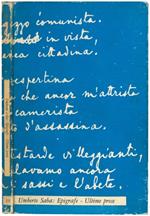 azzo comunista.
in vista,
anca cittadina.
espertina
che ancor m'attrista
camerista
o d'assassina.
estarde villeggianti,
lavamo ancora
i sassi e l'abete.
Umberto Saba: Epigrafe - Ultime prose